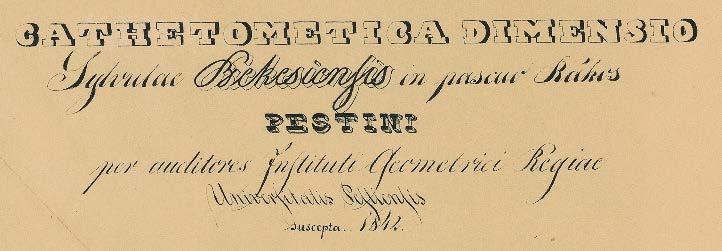 CATHETOMETICA DIMENSIO
Sylvulae Bekesiensis in pascuo Rákos
PESTINI
per auditores Instituti Geometrici Regiae
Universitatis Pestiensis
suscepta.. 1842.